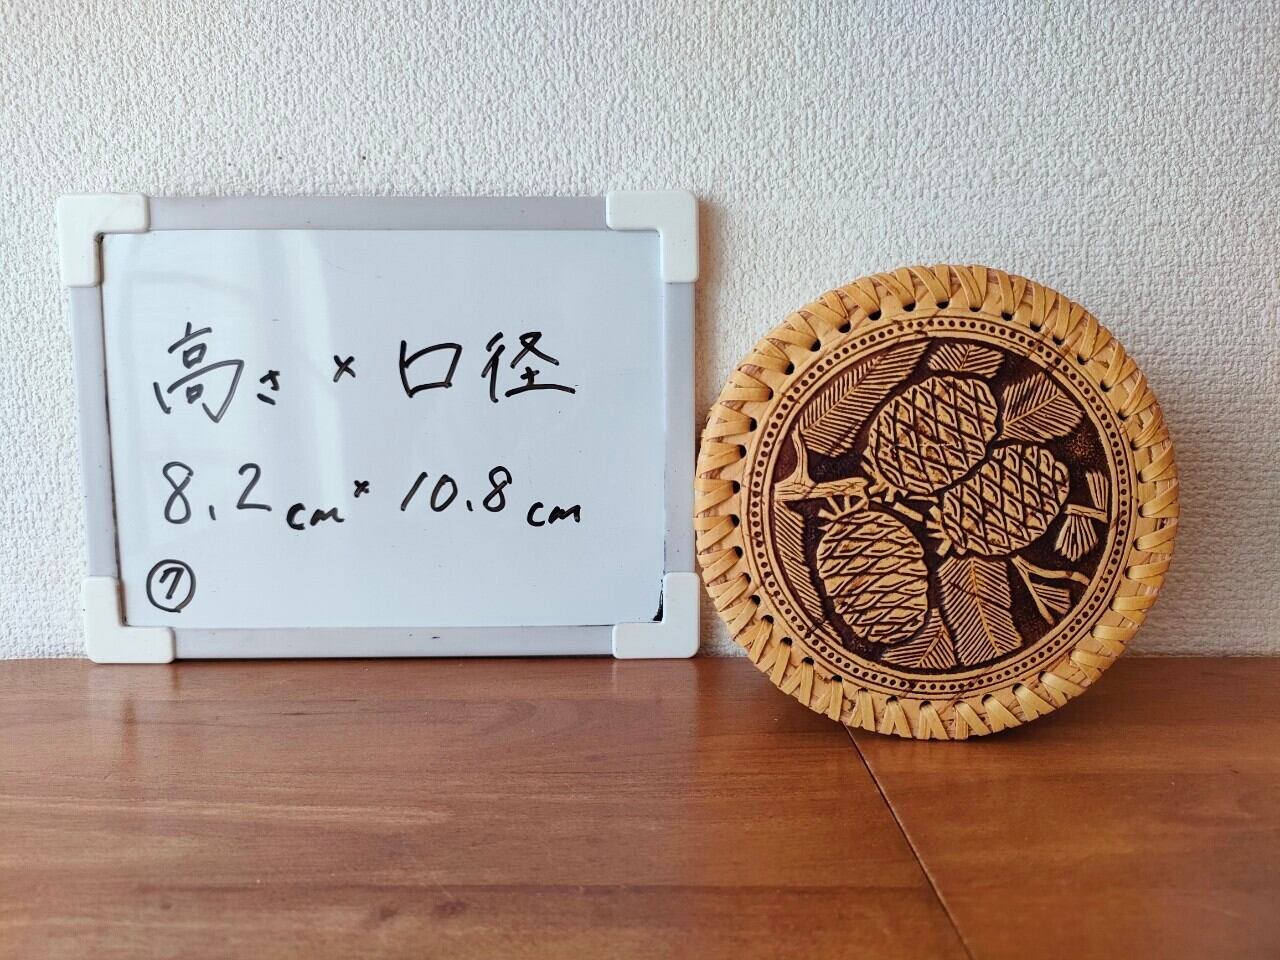 高さ × 口径
8.2cm × 10.8cm
⑦